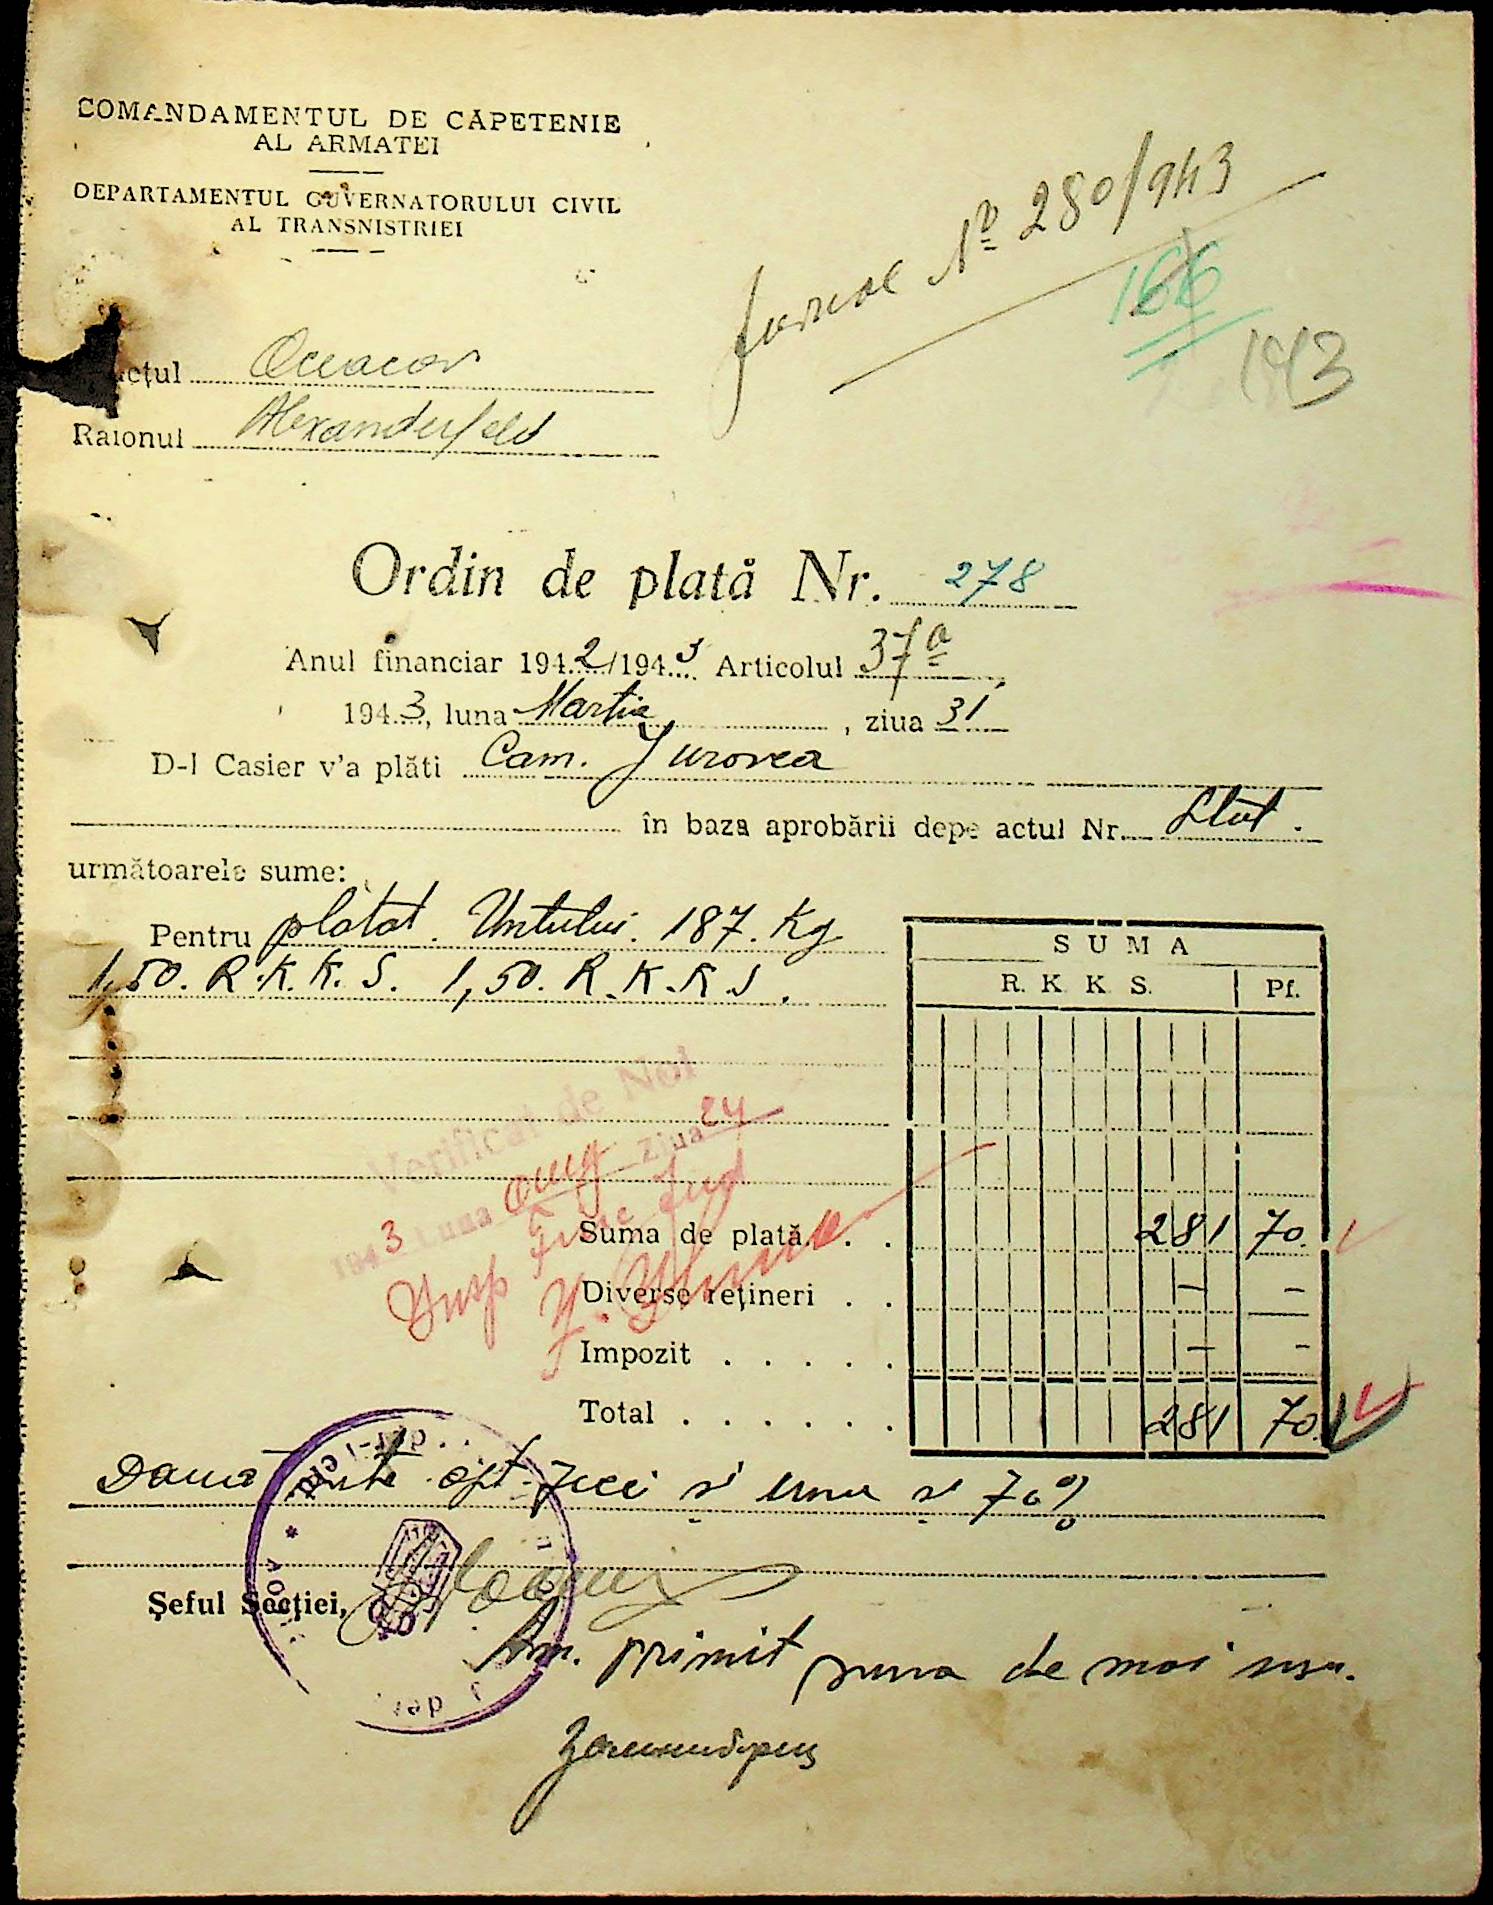 COMANDAMENTUL DE CĂPETENIE
AL ARMATEI
DEPARTAMENTUL GUVERNATORULUI CIVIL
AL TRANSNISTRIEI
Jurnal No 280/943
166
1943
ețul Oceacov
Raionul Alexanderfeld
Ordin de plată Nr. 278
Anul financiar 1942/1943 Articolul 37a
1943, luna Martie, ziua 31
D-l Casier v'a plăti Cam. Jurovca
în baza aprobării depe actul Nr. Stat.
următoarele sume:
Pentru platat. Untului. 187. Kg
1,50. R.K.K.S. 1,50. R.K.K.S.
SUMA
R. K. K. S. Pf.
Verificat de Noi
1943 Luna aug ziua 24
Insp Finc Jud
Suma de plată. . . 281 70
Diverse rețineri . . — —
Impozit . . . . . — —
Total . . . . . . 281 70
Două sute opt zeci și unu și 70%
Șeful Secției,
Am. primit suma de mai sus.